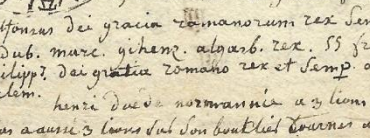 lfonsus dei gracia romanorum rex sem
dub. marc. gihenz. algarb. rex. 55 fr
ilipp? dei gratia romano rex et semp. a
elem.
henri duc de normannie a 3 lions
as a aussi 3 lions sus son bouclies tournes a